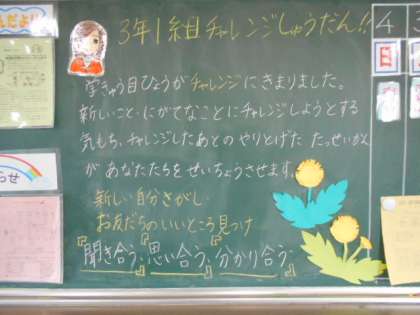 3年1組チャレンジしゅうだん!!
学きゅう目ひょうがチャレンジにきまりました。
新しいこと・にがてなことにチャレンジしようとする
気もち、チャレンジしたあとのやりとげた たっせいかん
が あなたたちを せいちょうさせます。
新しい自分さがし・
お友だちのいいところ見つけ
『聞き合う』『思い合う』『分かり合う』
んだよ!!
らせ
4
日